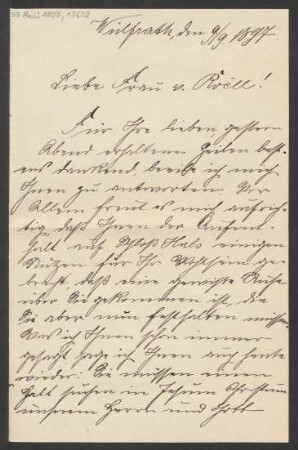 Wülfrath, den 9/9 1897
Liebe Frau v. Roëll!
Für Ihre lieben gestern
Abend erhaltene Zeilen best-
ens dankend, beeile ich mich
Ihnen zu antworten. Vor
Allem freut es mich aufrich-
tig, daß Ihnen der Aufent-
halt auf Schloß Hals einigen
Nutzen für Ihr Befinden ge-
bracht, daß eine gewisse Ruhe
über Sie gekommen ist, die
Sie aber nun festhalten müssen
Was ich Ihnen schon immer
gesagt sage ich Ihnen auch heute
wieder: Sie müssen einen
Halt suchen in Jesum Christum
unserem Herrn und Gott